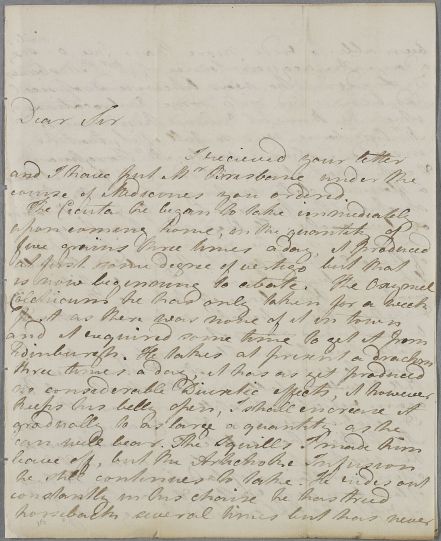 Dear Sir
I recieved your letter
and I have put Mr under the
course of Medicines you ordered.
The Cicuta he began to take immediately
upon coming home, in the quantity of
five grains three times a day, it produced
at first some degree of vertigo but that
is now beginning to abate. The Oxymel
Colchicum he has only taken for a week
past as there was none of it in town
and it required some time to get it from
Edinburgh. He takes at present a drachm
three times a day, it has as yet produced
no considerable Diuretic effects, it however
keeps his belly open, I shall increase it
gradually to as large a quantity as he
can well bear. The Squills I made him
leave off, but the Artichoke Infusion
he still continues to take. He rides out
constantly in his chaise he has tried
horseback several times but has never